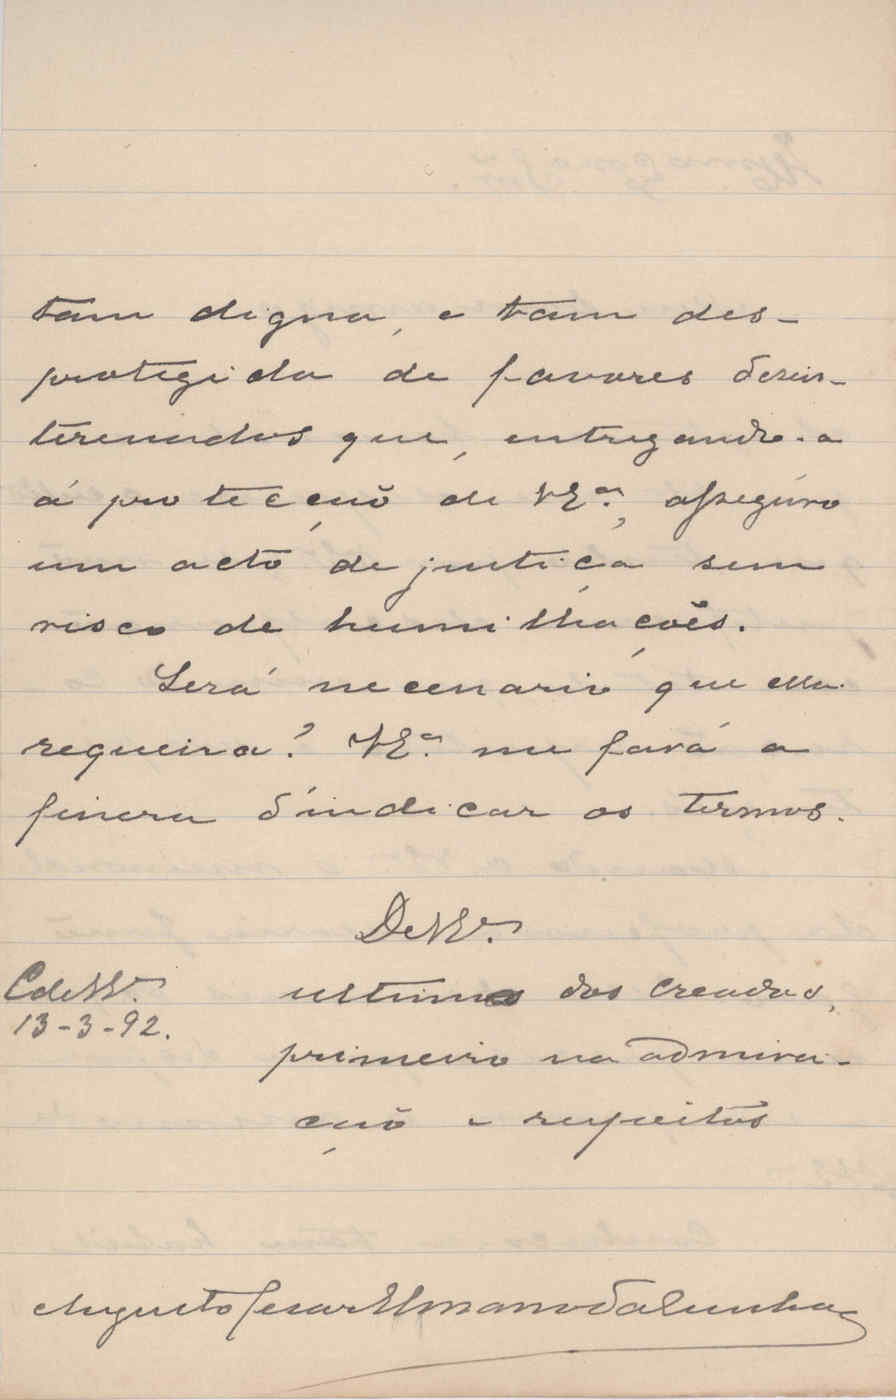 tam digna, e tam des-
protegida de favores desin-
teressados que, entregando-a
á protecção de VEª., asseguro
um acto de justiça sem
risco de humilhações.
Será necessario que ella
requeira? VEª. me fará a
fineza d'indicar os termos.
De VEª.
C de VVª.
13-3-92.
ultimo dos creados,
primeiro na admira-
ção e respeitos
Augusto Cesar Elmano da Cunha